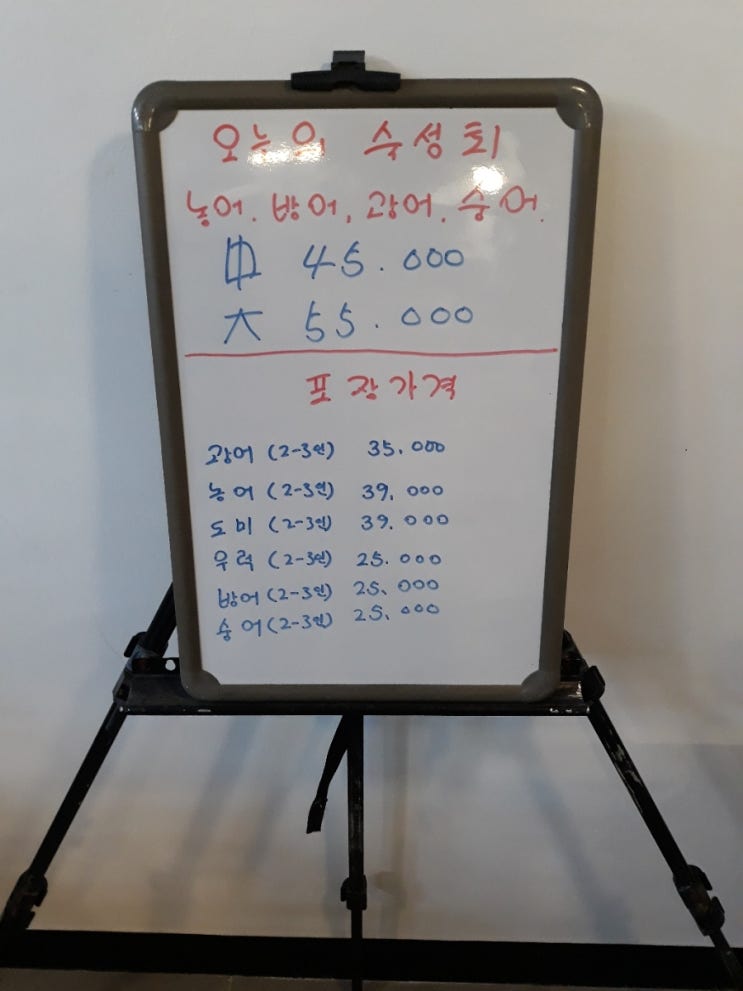 오늘의 수성회
농어. 방어, 광어. 숭어.
中 45.000
大 55.000
포장가격
광어 (2-3인) 35.000
농어 (2-3인) 39.000
도미 (2-3인) 39.000
우럭 (2-3인) 25.000
방어 (2-3인) 25.000
숭어 (2-3인) 25.000